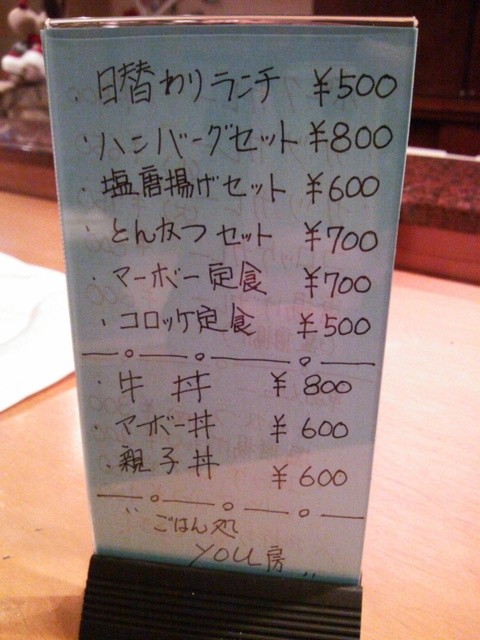 ・日替わりランチ ¥500
・ハンバーグセット ¥800
・塩唐揚げセット ¥600
・とんかつセット ¥700
・マーボー定食 ¥700
・コロッケ定食 ¥500
・牛丼 ¥800
・マーボー丼 ¥600
・親子丼 ¥600
"ごはん処
YOU房"